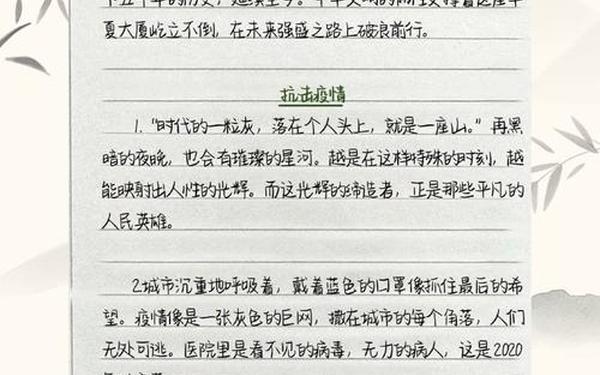 五千年的历史，延续至今。千年文明的 着这座华
夏大厦屹立不倒，在未来强盛之路上破浪前行。
抗击疫情
1.“时代的一粒灰，落在个人头上，就是一座山。”再黑
暗的夜晚，也会有璀璨的星河。越是在这样特殊的时刻，越
能映射出人性的光辉。而这光辉的缔造者，正是那些平凡的
人民英雄。
2.城市沉重地呼吸着，戴着蓝色的口罩像抓住最后的希
望。疫情像是一张灰色的巨网，撒在城市的每个角落，人们
无处可逃。医院里是看不见的病毒，无力的病人，这是2020